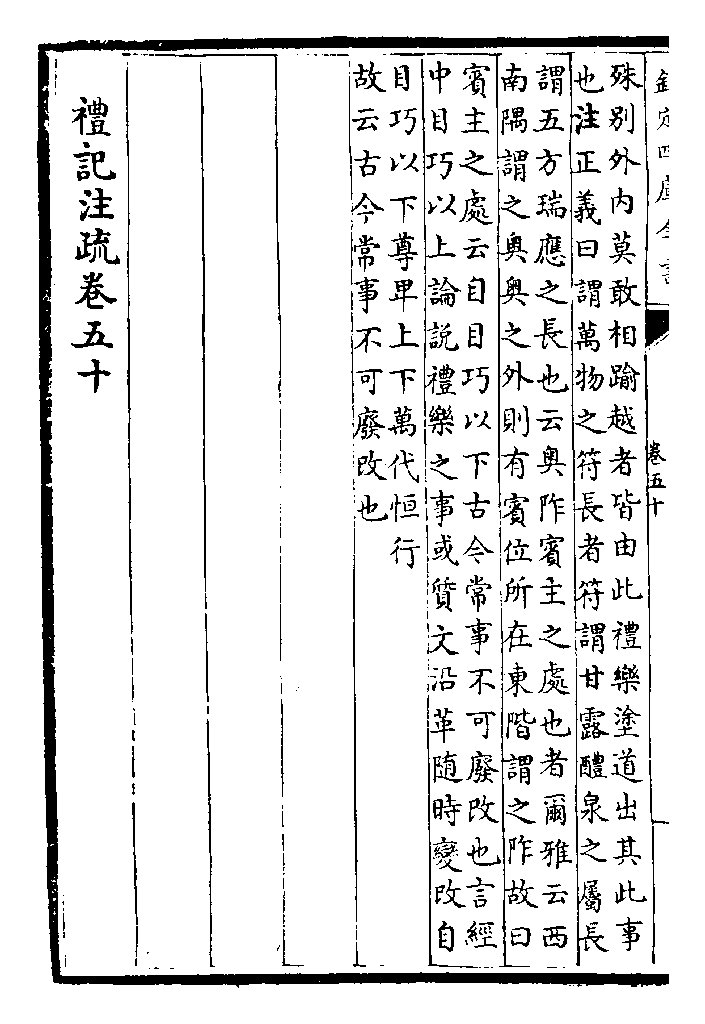 欽定四庫全書
卷五十
殊别外内莫敢相踰越者皆由此禮樂塗道出其此事
也注正義曰謂萬物之符長者符謂甘露醴泉之屬長
謂五方瑞應之長也云奥阼賓主之處也者爾雅云西
南隅謂之奥奥之外則有賓位所在東階謂之阼故曰
賓主之處云自目巧以下古今常事不可廢改也言經
中目巧以上論説禮樂之事或質文沿革隨時變改自
目巧以下尊卑上下萬代恒行
故云古今常事不可廢改也
禮記注疏卷五十